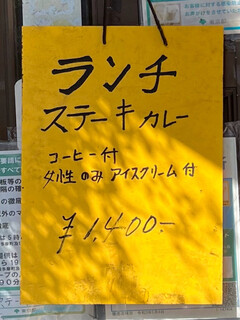 ランチ
ステーキカレー
コーヒー付
女性のみ アイスクリーム付
¥1,400-